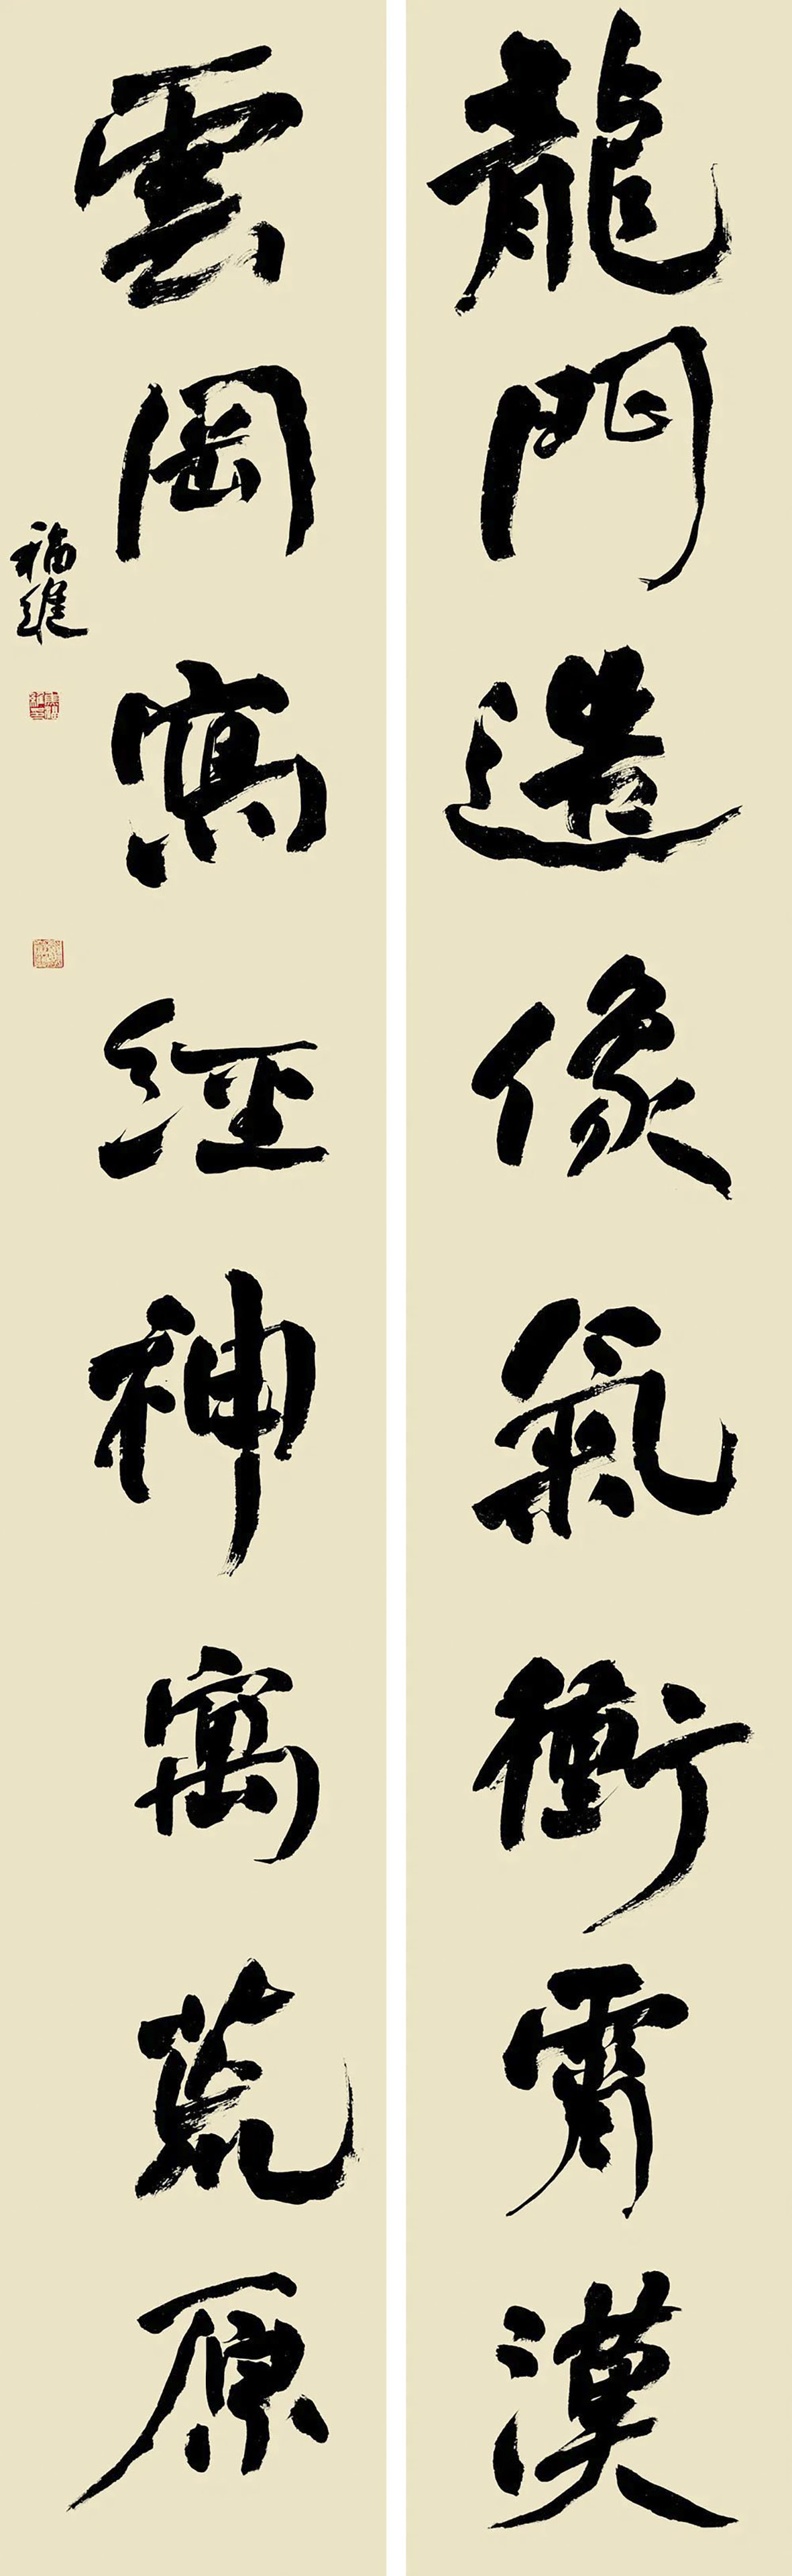 龍門造像氣衝霄漢
雲岡寫經神寓荒原
福進